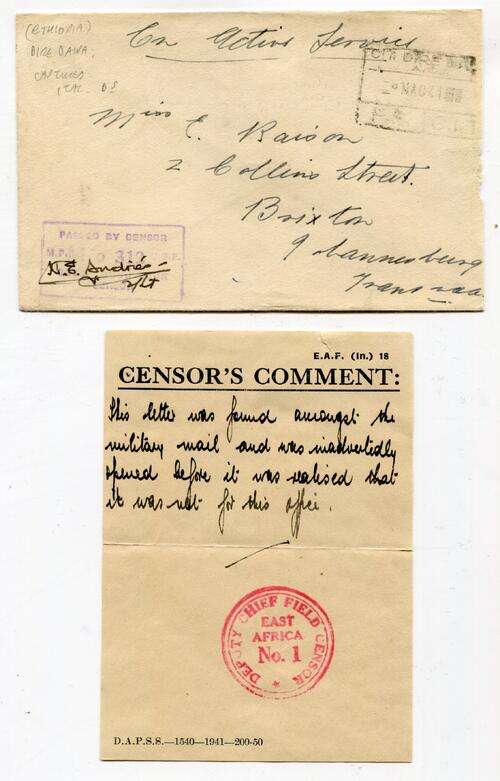 (ETHIOPIA)
DIRE DAWA.
On Active Service
MAG 41
Miss E. Raison
2 Collins Street.
Brixton
Johannesburg
Transvaal
PASSED BY CENSOR
M.P. No 312
N. E. Andries
2/Lt
CENSOR
E.A.F. (In.) 18
CENSOR'S COMMENT:
This letter was found amongst the
military mail and was inadvertedly
opened before it was realised that
it was not for this office.
DEPUTY CHIEF FIELD CENSOR
EAST
AFRICA
No. 1
D.A.P.S.S.—1540—1941—200-50